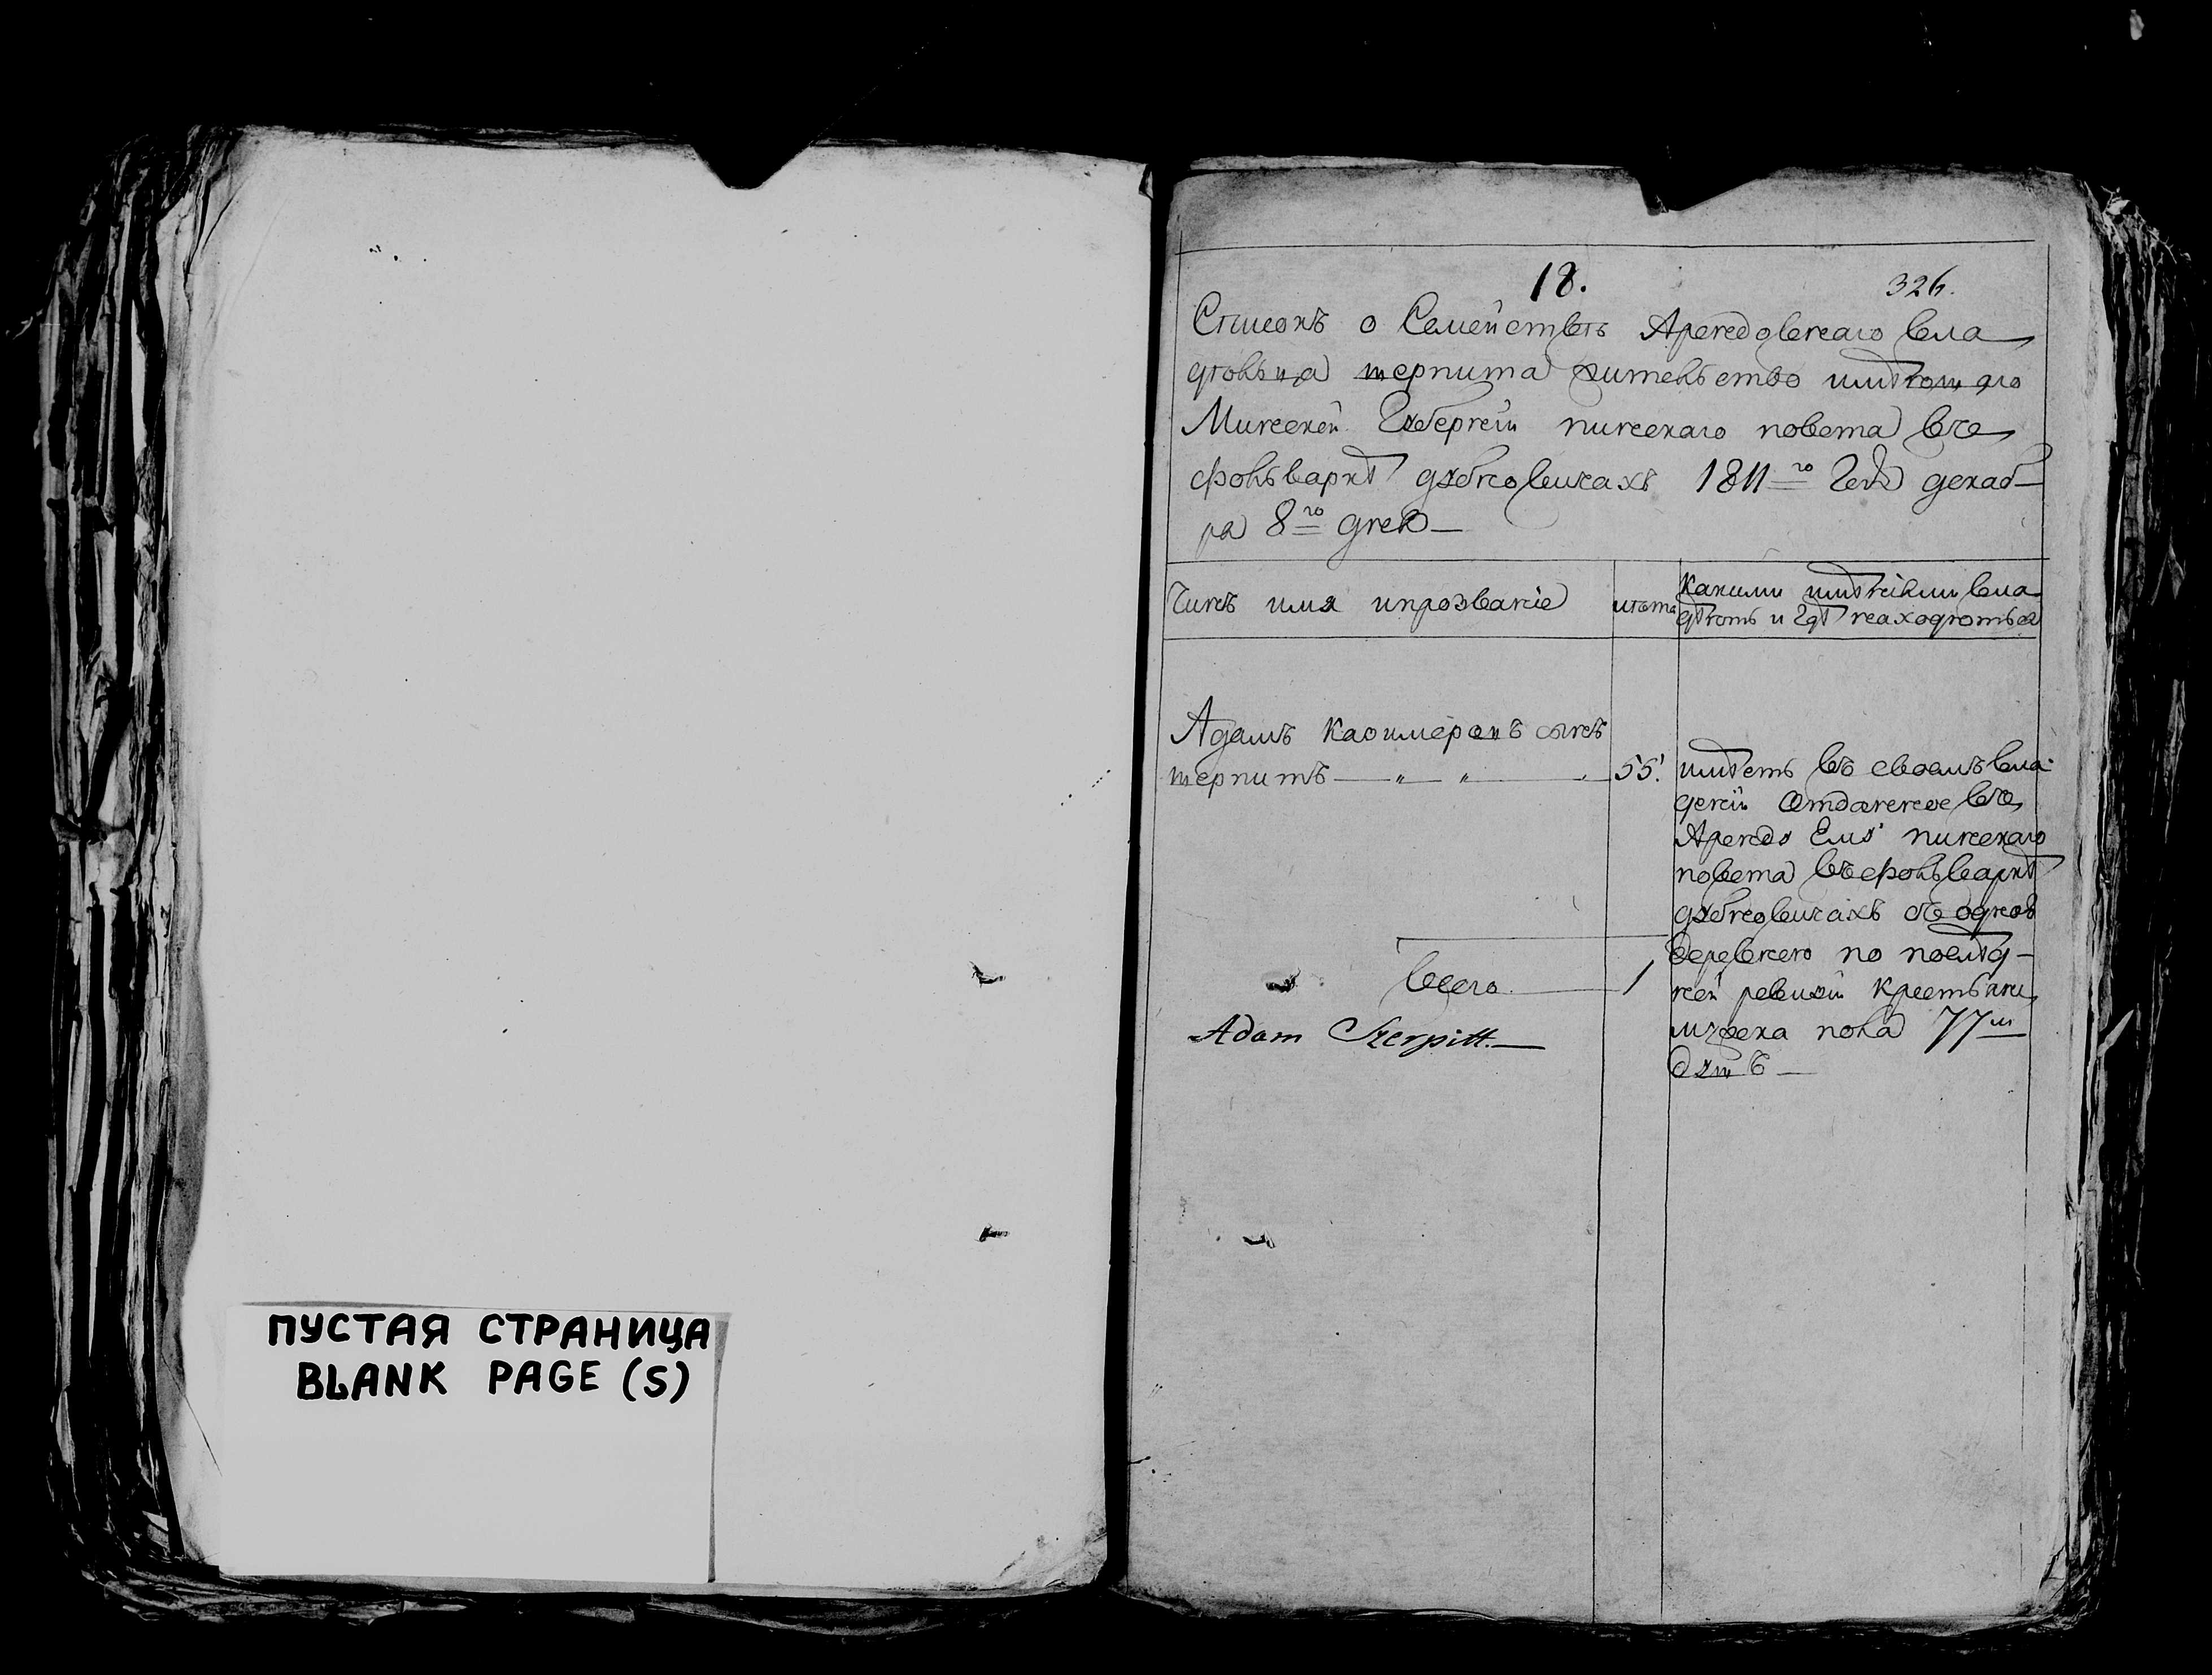 ПУСТАЯ СТРАНИЦА
BLANK PAGE (S)
18.
326.
Списокъ о Семействѣ Арендовскаго вла
дѣльца шерпита жительство имѣющаго
Минской Губерніи пинскаго повета въ
фольваркѣ дубновичахъ 1811го Года декаб-
ра 8го дня
Чинъ имя ипрозваніе
лѣта
Какими имѣніями вла
дѣютъ и Гдѣ находятся
Адамъ Казимеровъ сынъ
шерпитъ
55.
имѣетъ въ своемъ вла
деніи Отданное въ
Аренду Ему пинскаго
повета въ фольваркѣ
дубновичахъ съ одною
деревнею по послѣд-
ней ревизіи Крестьянъ
мужска пола 77ш
душъ
всего 1
Adam Szerpitt.